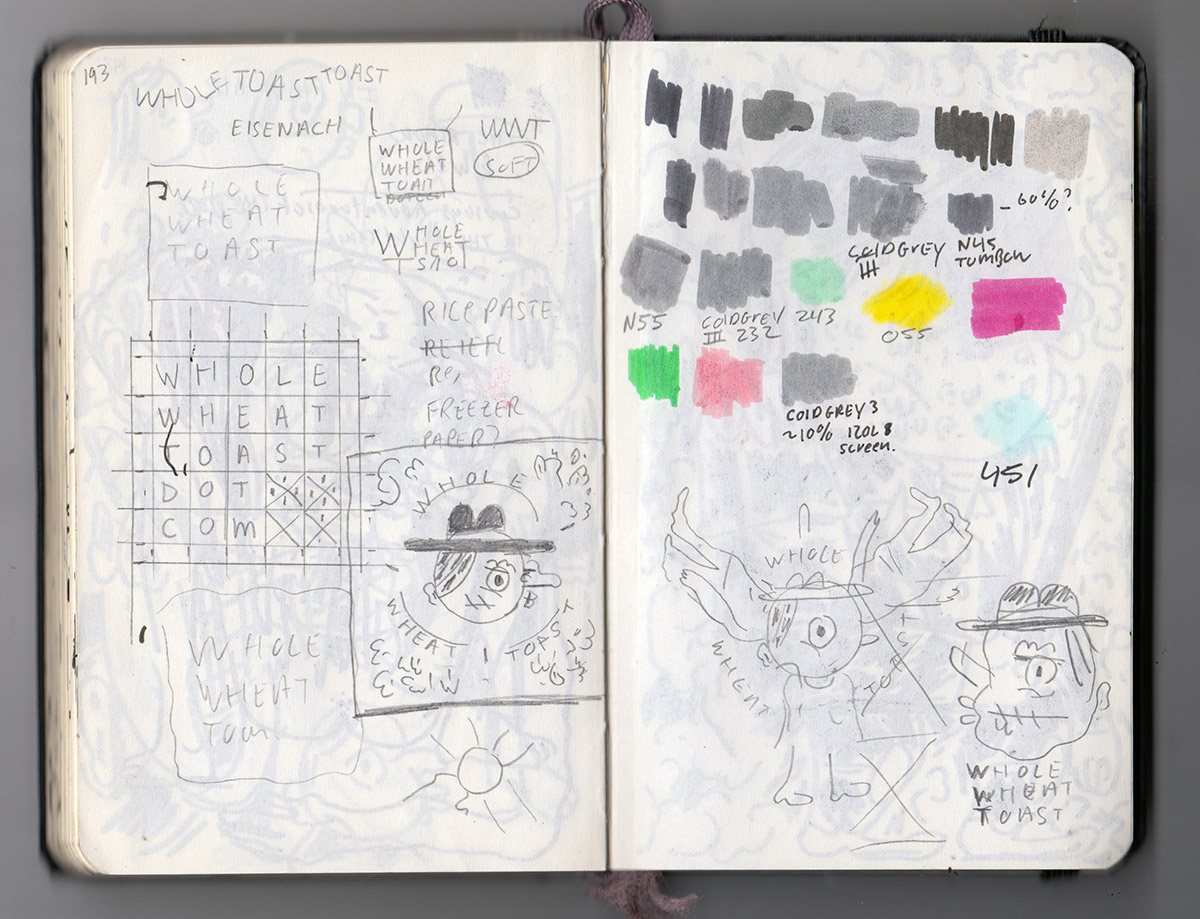 193
WHOLE TOAST TOAST
EISENACH
WHOLE
WHEAT
TOAST
WWT
SOFT
WHOLE
WHEAT
TOAST
WHOLE
WHEAT
RICE PASTE
FREEZER
PAPER?
WHOLE
WHEAT
TOAST
DOT
COM
WHOLE
WHEAT
TOAST
WHOLE
WHEAT
- 60%?
COLDGREY
III
N45
TOMBOW
N55
COLDGREY
III 232
243
055
COLDGREY 3
~10%
screen.
451
WHOLE
WHEAT
TOAST
WHOLE
WHEAT
TOAST